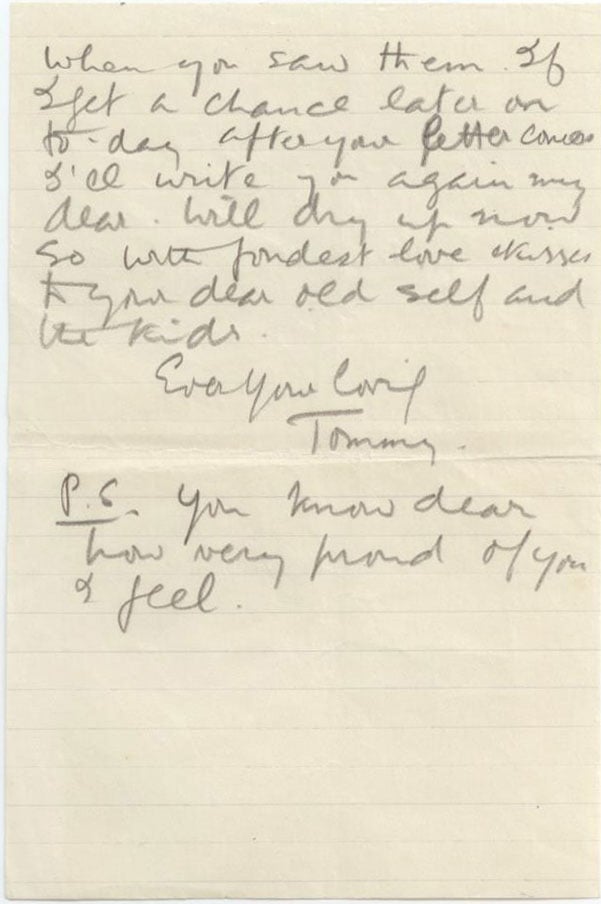 when you saw them. If
I get a chance later on
to-day after your letter comes
I'll write you again my
dear. Will dry up now
So with fondest love & kisses
to your dear old self and
the kids.
Ever Your Loving
Tommy.
P.S. You know dear
how very proud of you
I feel.